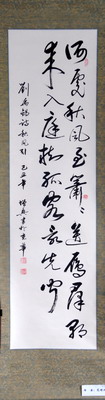 何處秋風至蕭々送雁群朝
來入庭樹孤客最先聞
劉禹錫詩秋風引 己丑年 書於京華